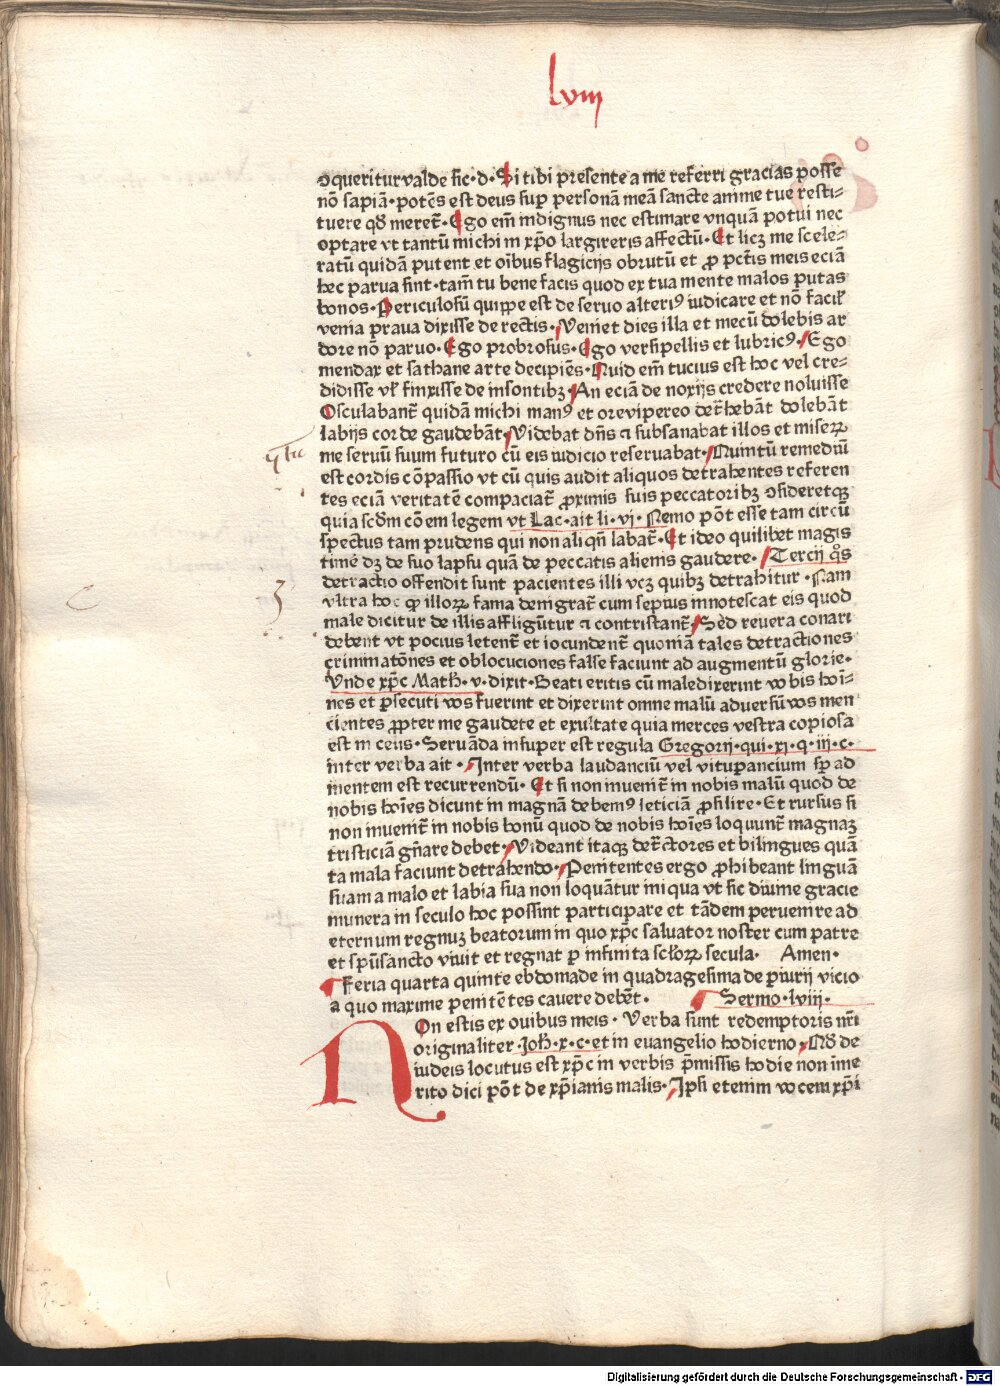 lviii
ↄqueritur valde sic·d·Si tibi presente a me referri gracias posse
nō sapiā·potēs est deus suꝑ personā meā sancte anime tue resti⸗
tuere qđ meret̄·Ego em̄ indignus nec estimare vnquā potui nec
optare vt tantū michi in xp̄o largireris affectū·Et licꝫ me scele⸗
ratū quidā putent et oībus flagicijs obrutū et ꝓ pctīs meis eciā
hec parua sint·tam̄ tu bene facis quod ex tua mente malos putas
bonos·Periculosū quippe est de seruo alteriꝰ iudicare et nō facil̕
venia praua dixisse de rectis·Veniet dies illa et mecū dolebis ar
dore nō paruo·Ego probrosus·Ego versipellis et lubricꝰ·Ego
mendax et sathane arte decipiēs·Quid em̄ tucius est hoc vel cre⸗
didisse vl̕ finxisse de insontibꝫ·An eciā de noxijs credere noluisse
Osculabant̄ quidā michi manꝰ et ore vipereo det̄hebāt dolebāt
labijs corde gaudebāt·Videbat dn̄s ⁊ subsanabat illos et miseꝝ
me seruū suum futuro cū eis iudicio reseruabat·Quintū remediū
est cordis cōpassio vt cū quis audit aliquos detrahentes referen
tes eciā veritatē compaciat̄ ꝓximis suis peccatoribꝫ ↄsideretqꝫ
quia scd̄m cōem legem vt Lac·ait li·vi·Nemo pōt esse tam circū
spectus tam prudens qui non aliqn̄ labat̄·Et ideo quilibet magis
timē dꝫ de suo lapsu quā de peccatis alienis gaudere·Tercij q̊s
detractio offendit sunt pacientes illi vcꝫ quibꝫ detrahitur·Nam
vltra hoc ꝙ illoꝝ fama denigrat̄ cum sepius innotescat eis quod
male dicitur de illis affligūtur ⁊ contristant̄·Sed reuera conari
debent vt pocius letent̄ et iocundent̄ quoniā tales detractiones
criminatōnes et oblocuciones false faciunt ad augmentū glorie·
Vnde xp̄c Math·v·dixit·Beati eritis cū maledixerint vobis hoī⸗
nes et ꝑsecuti vos fuerint et dixerint omne malū aduersū vos men
cientes ꝓpter me gaudete et exultate quia merces vestra copiosa
est in celis·Seruāda insuper est regula Gregorij·qui·xi·q·iii·c·
inter verba ait·Inter verba laudanciū vel vituꝑancium sꝑ ad
mentem est recurrendū·Et si non inuenit̄ in nobis malū quod de
nobis hoīes dicunt in magnā debemꝰ leticiā ꝓsilire·Et rursus si
non inuenit̄ in nobis bonū quod de nobis hoīes loquunt̄ magnaꝫ
tristiciā gn̄are debet·Videant itaqꝫ det̄ctores et bilingues quā
ta mala faciunt detrahendo·Penitentes ergo ꝓhibeant linguā
suam a malo et labia sua non loquātur iniqua vt sic diuine gracie
munera in seculo hoc possint participare et tādem peruenire ad
eternum regnuꝫ beatorum in quo xp̄c saluator noster cum patre
et spūsancto viuit et regnat ꝑ infinita scl̄oꝝ secula· Amen·
Feria quarta quinte ebdomade in quadragesima de ꝑiurij vicio
a quo maxime penitētes cauere debēt· Sermo·lviii·
NOn estis ex ouibus meis·Verba sunt redemptoris nr̄i
originaliter·Joh̄·x·c·et in euangelio hodierno·Nō de
iudeis locutus est xp̄c in verbis p̄missis hodie non īme
rito dici pōt de xp̄ianis malis·Ipsi etenim vocem xp̄i
Digitalisierung gefördert durch die Deutsche Forschungsgemeinschaft - DFG